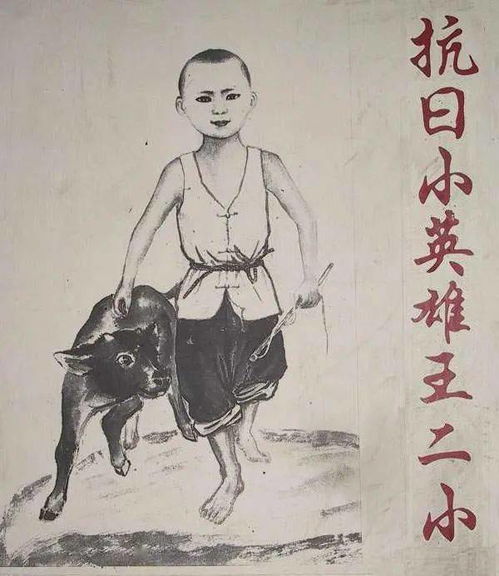 抗日小英雄王二小